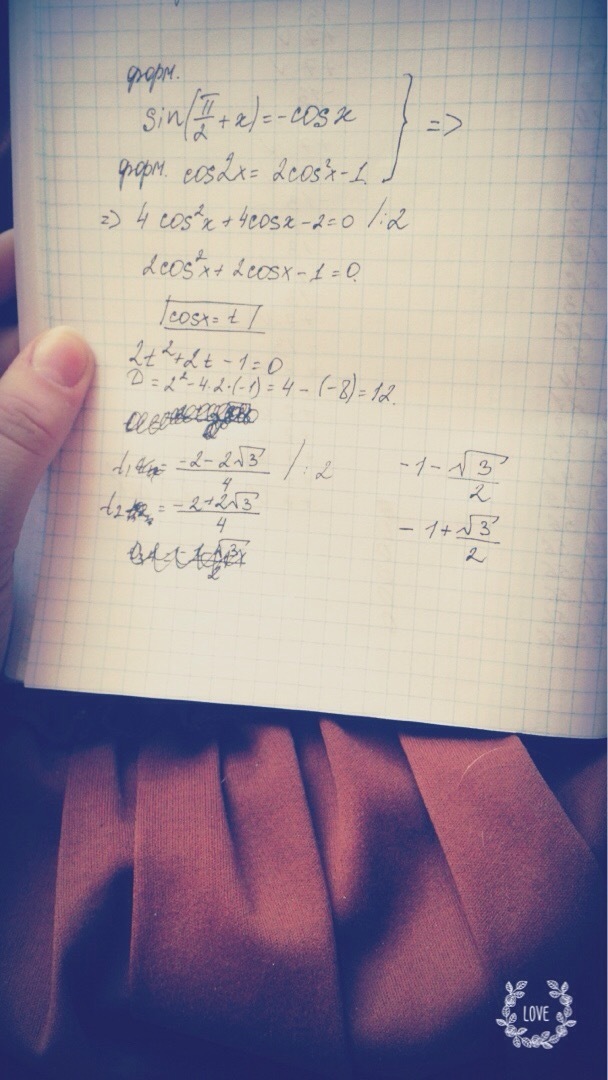 форм.
sin(π/2 + x) = -cos x } =>
форм. cos2x = 2cos²x - 1
=> 4 cos²x + 4cosx - 2 = 0 /:2
2cos²x + 2cosx - 1 = 0.
|cosx = t|
2t² + 2t - 1 = 0
D = 2² - 4·2·(-1) = 4 - (-8) = 12.
t₁ = (-2 - 2√3)/4 /:2 -1 - √3/2
t₂ = (-2 + 2√3)/4 -1 + √3/2
LOVE